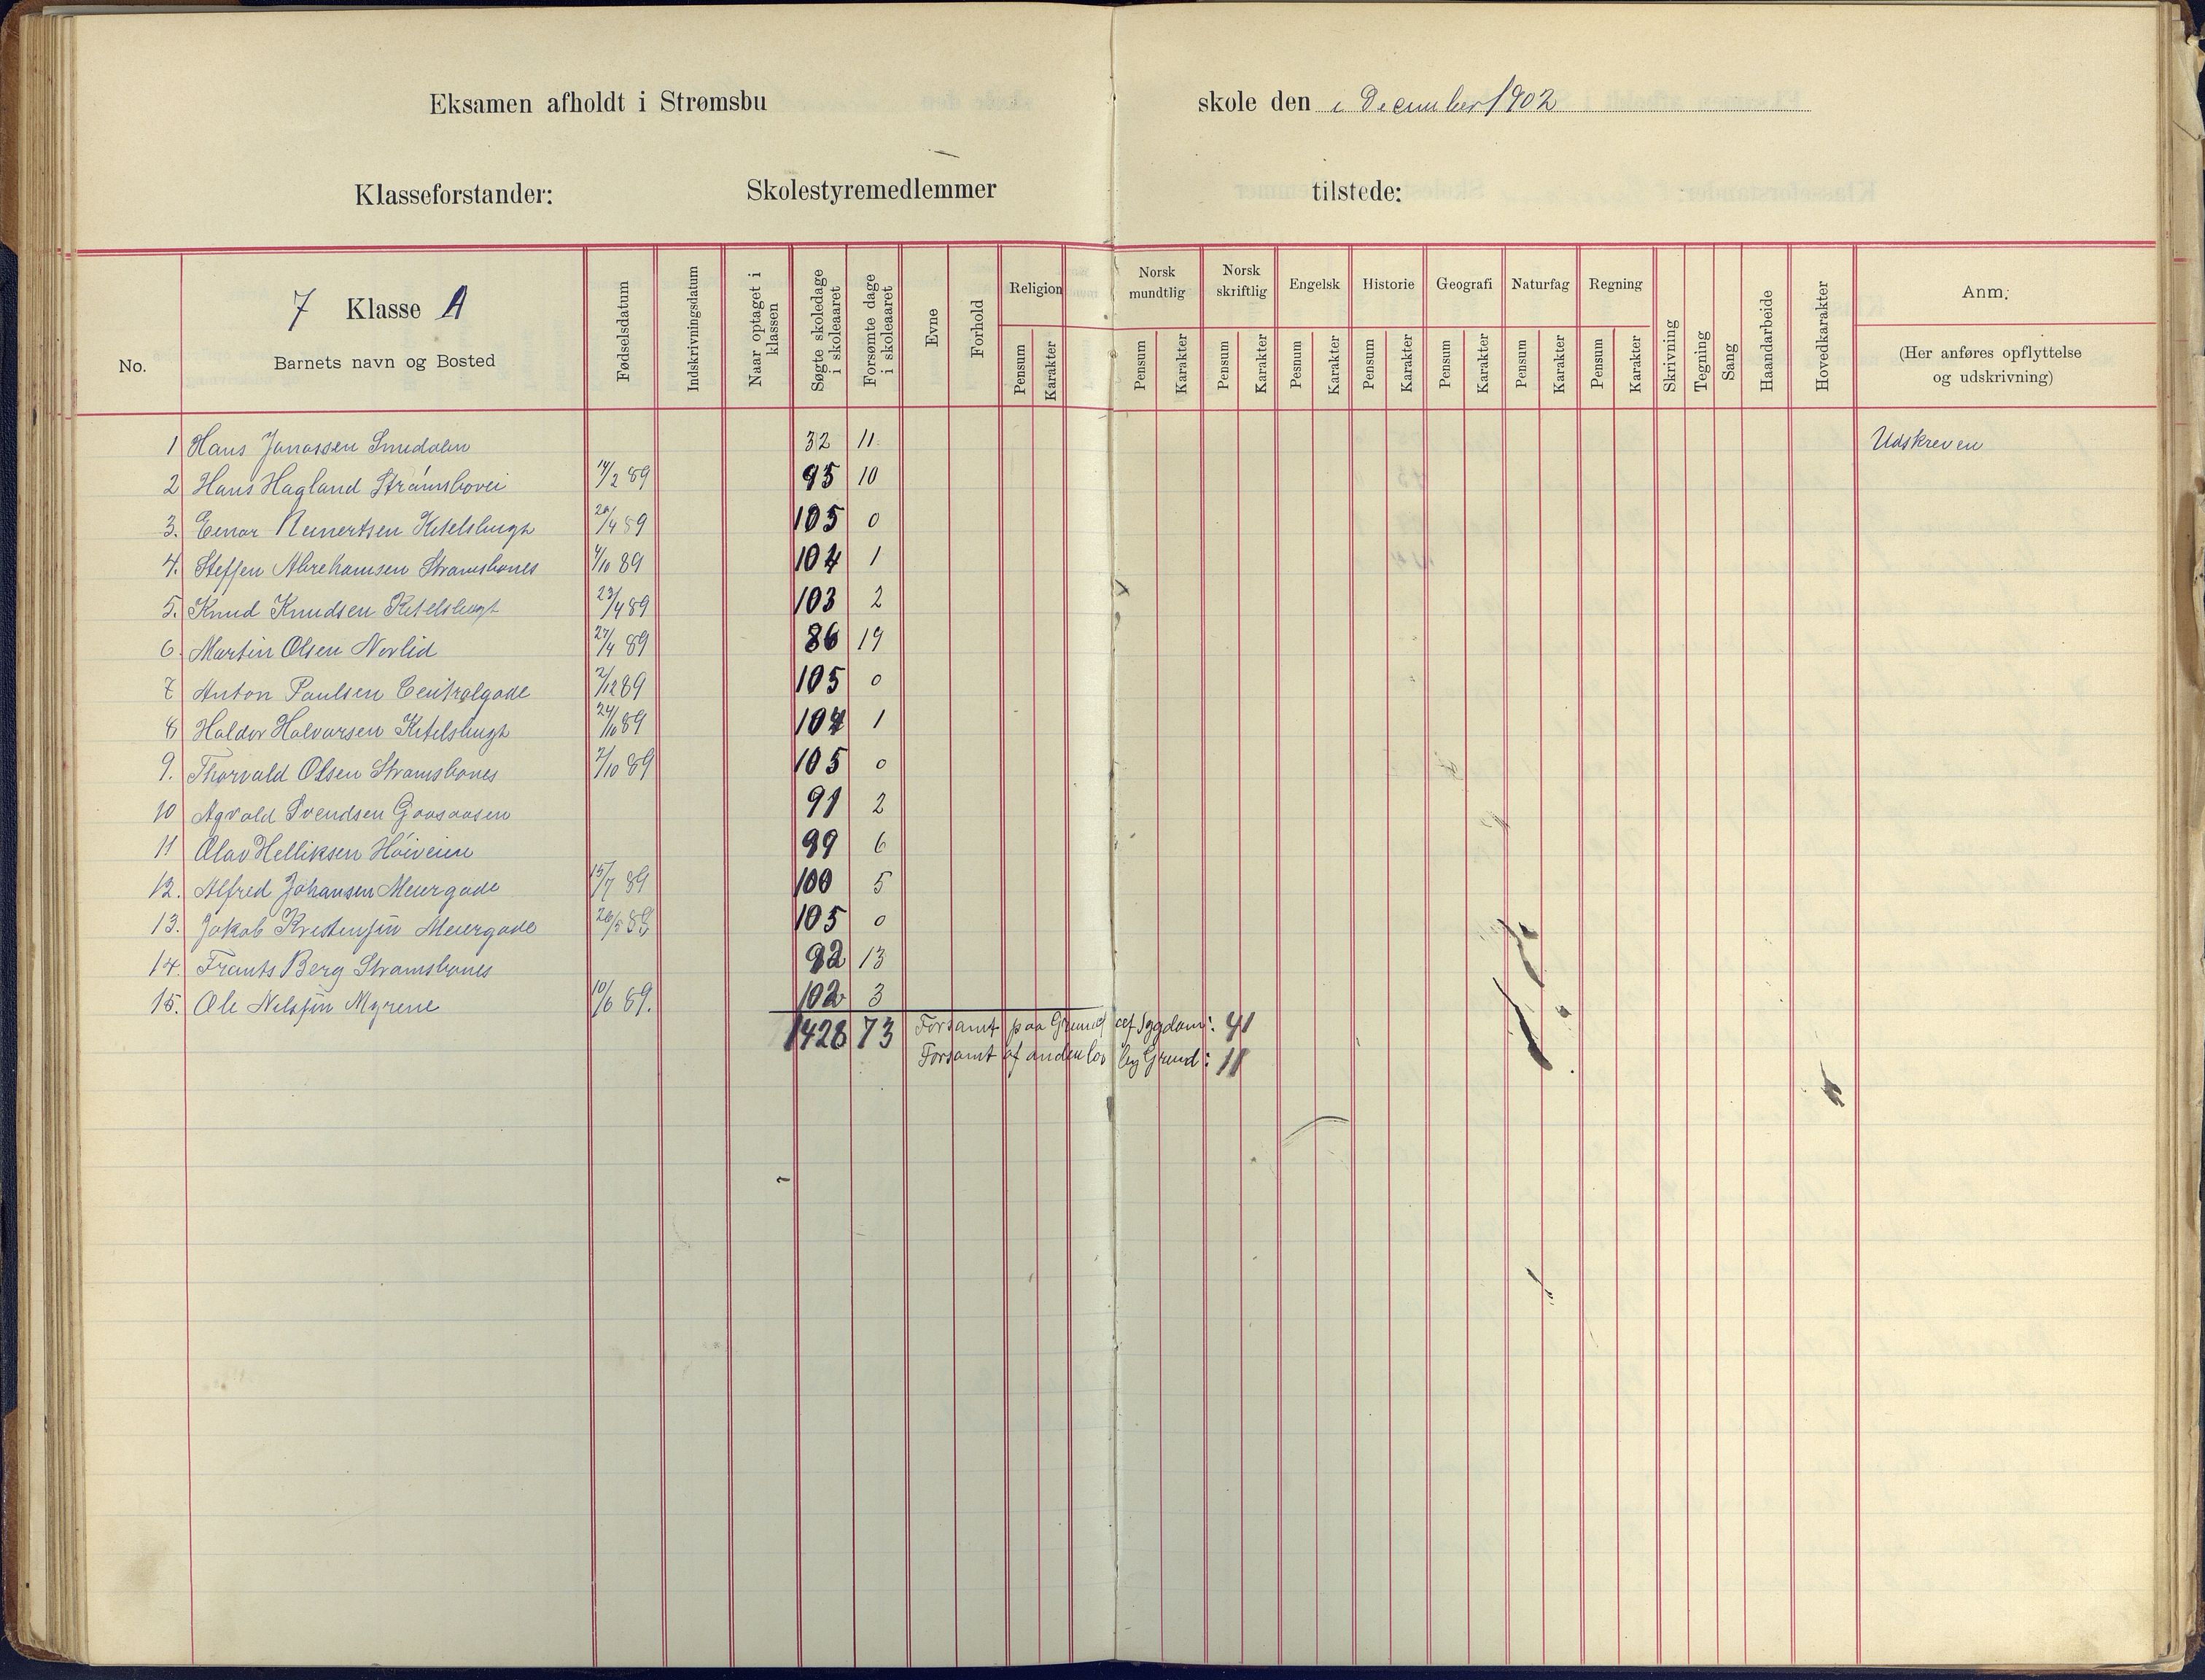 Eksamen afholdt i Strømsbu skole den i December 1902
Klasseforstander: Skolestyremedlemmer tilstede:
No.
7 Klasse A
Barnets navn og Bosted
Fødselsdatum
Indskrivningsdatum
Naar optaget i klassen
Søgte skoledage i skoleaaret
Forsømte dage i skoleaaret
Evne
Forhold
Religion
Pensum Karakter
Norsk mundtlig
Pensum Karakter
Norsk skriftlig
Pensum Karakter
Engelsk
Pesnum Karakter
Historie
Pensum Karakter
Geografi
Pensum Karakter
Naturfag
Pensum Karakter
Regning
Pensum Karakter
Skrivning
Tegning
Sang
Haandarbeide
Hovedkarakter
Anm:
(Her anføres opflyttelse
og udskrivning)
1 Hans Jonassen Smedalen 32 11 Udskreven
2 Hans Hagland Strømsbovei 14/2 89 95 10
3. Einar Reinertsen Kitelsbugt 20/4 89 105 0
4. Steffen Abrehamsen Strømsbones 4/10 89 104 1
5. Knud Knudsen Kitelsbugt 23/4 89 103 2
6. Martin Olsen Norlid 27/4 89 86 19
7 Anton Paulsen Centralgade 2/12 89 105 0
8 Haldor Halvorsen Kitelsbugt 24/10 89 104 1
9. Thorvald Olsen Strømsbones 2/10 89 105 0
10 Agvald Svendsen Gaasaasen 91 2
11 Olav Helliksen Høiveien 99 6
12. Alfred Johansen Meiergade 15/7 89 100 5
13. Jakob Kristensen Meiergade 26/5 89 105 0
14. Frants Berg Strømsbones 92 13
15. Ole Nilsen Myrene 10/6 89. 102 3
1428 73 Forsømt paa Grund af Sygdom: 41
Forsømt af anden lovlig Grund: 11